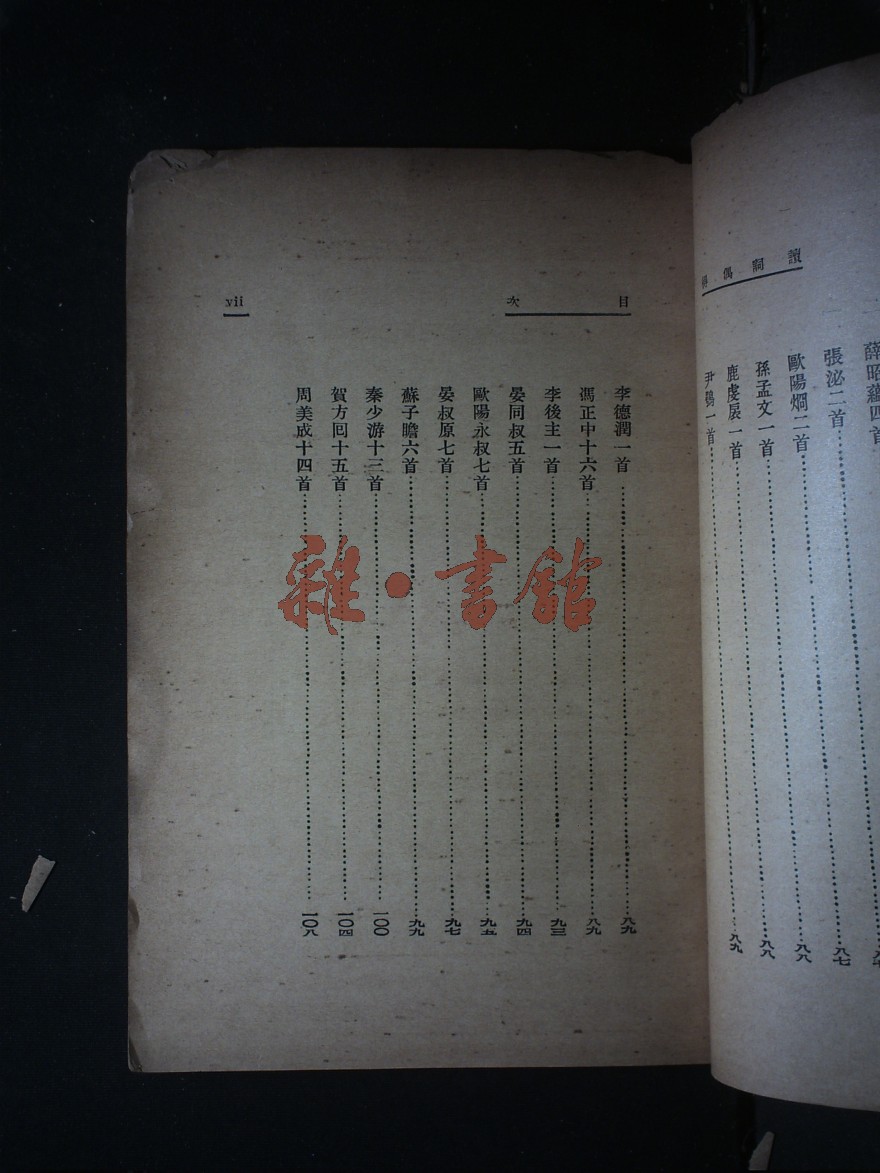 讀詞偶得
薛昭蘊四首
張泌二首……八七
歐陽烱二首……八八
孫孟文一首……八八
鹿虔扆一首……八九
尹鶚一首
目次
vii
李德潤一首……八九
馮正中十六首……八九
李後主一首……九三
晏同叔五首……九四
歐陽永叔七首……九五
晏叔原七首……九七
蘇子瞻六首……九九
秦少游十三首……一〇〇
賀方回十五首……一〇四
周美成十四首……一〇八
雜·書館